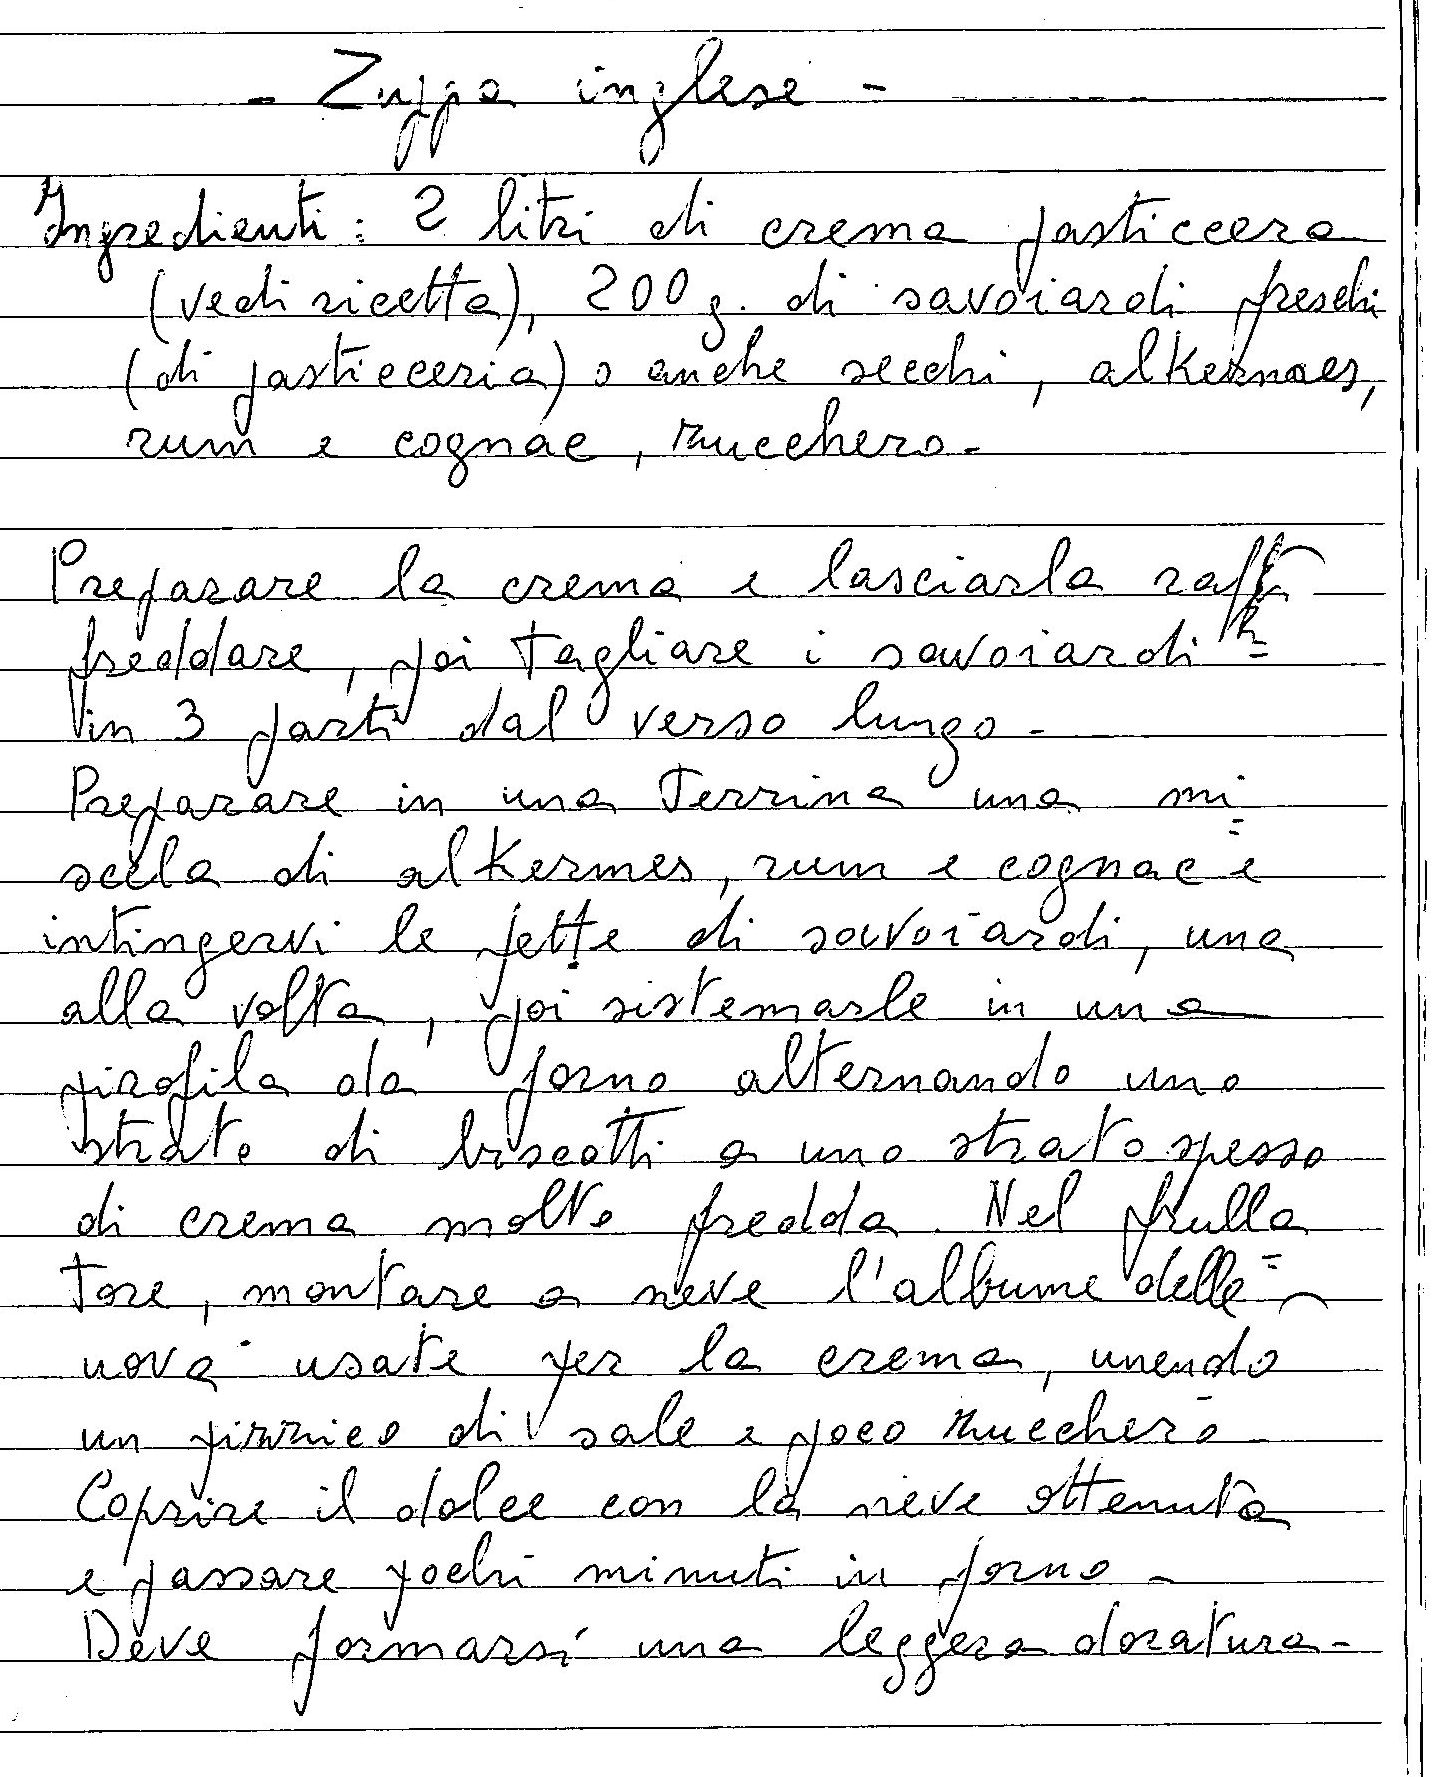 - Zuppa inglese -
Ingredienti: 2 litri di crema pasticcera
(vedi ricetta), 200 g. di savoiardi freschi
(di pasticceria) o anche secchi, alkermes,
rum e cognac, zucchero.
Preparare la crema e lasciarla raf
freddare, poi tagliare i savoiardi
in 3 parti dal verso lungo.
Preparare in una Terrina una mi=
scela di alkermes, rum e cognac e
intingervi le fette di savoiardi, una
alla volta, poi sistemarle in una
pirofila da forno alternando uno
strato di biscotti a uno strato spesso
di crema molto fredda. Nel frulla=
tore, montare a neve l'albume delle
uova usate per la crema, unendo
un pizzico di sale e poco zucchero.
Coprire il dolce con la neve ottenuta
e passare pochi minuti in forno -
Deve formarsi una leggera doratura -